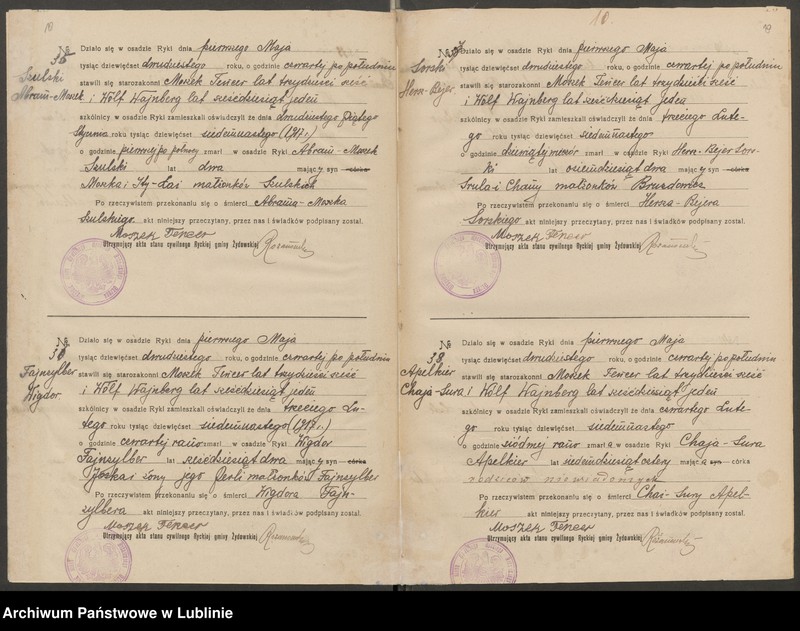 10.
№ 35
Szulski
Abram-Moszek
Działo się w osadzie Ryki dnia pierwnego Maja
tysiąc dziewięćset dwudziestego roku, o godzinie czwartej po południu
stawili się starozakonni Moszek Fencer lat trzydzieści sześć
i Wolf Wajnberg lat sześćdziesiąt jeden
szkólnicy w osadzie Ryki zamieszkali oświadczyli że dnia dwudziestego Piątego
Stycznia roku tysiąc dziewięćset siedemnastego (1917 r.)
o godzinie pierwszej po północy zmarł w osadzie Ryki Abram-Moszek
Szulski lat dwa mający syn córka
Moszka i małżonków Szulskich
Po rzeczywistem przekonaniu się o śmierci Abrama-Moszka
Szulskiego akt niniejszy przeczytany, przez nas i świadków podpisany został.
Moszek Fencer
Utrzymujący akta stanu cywilnego Ryckiej gminy Żydowskiej
№ 36
Fajnzylber
Wigdor
Działo się w osadzie Ryki dnia pierwnego Maja
tysiąc dziewięćset dwudziestego roku, o godzinie czwartej po południu
stawili się starozakonni Moszek Fencer lat trzydzieści sześć
i Wolf Wajnberg lat sześćdziesiąt jeden
szkólnicy w osadzie Ryki zamieszkali oświadczyli że dnia trzeciego Lu-
tego roku tysiąc dziewięćset siedemnastego (1917 r.)
o godzinie czwartej rano zmarł w osadzie Ryki Wigdor
Fajnzylber lat sześćdziesiąt dwa mający syn córka
Joska i żony jego Perli małżonków Fajnzylber
Po rzeczywistem przekonaniu się o śmierci Wigdora Fajn-
zylbera akt niniejszy przeczytany, przez nas i świadków podpisany został.
Moszek Fencer
Utrzymujący akta stanu cywilnego Ryckiej gminy Żydowskiej
№ 37
Sorski
Hersz-Bejer
Działo się w osadzie Ryki dnia pierwnego Maja
tysiąc dziewięćset dwudziestego roku, o godzinie czwartej po południu
stawili się starozakonni Moszek Fencer lat trzydzieści sześć
i Wolf Wajnberg lat sześćdziesiąt jeden
szkólnicy w osadzie Ryki zamieszkali oświadczyli że dnia trzeciego Lute-
go roku tysiąc dziewięćset siedemnastego
o godzinie zmarł w osadzie Ryki Hersz-Bejer Sors-
ki lat osiemdziesiąt dwa mający syn córka
Srula i Chany małżonków
Po rzeczywistem przekonaniu się o śmierci Hersza-Bejera
Sorskiego akt niniejszy przeczytany, przez nas i świadków podpisany został.
Moszek Fencer
Utrzymujący akta stanu cywilnego Ryckiej gminy Żydowskiej
№ 38
Apelkier
Chaja-Sura
Działo się w osadzie Ryki dnia pierwnego Maja
tysiąc dziewięćset dwudziestego roku, o godzinie czwartej po południu
stawili się starozakonni Moszek Fencer lat trzydzieści sześć
i Wolf Wajnberg lat sześćdziesiąt jeden
szkólnicy w osadzie Ryki zamieszkali oświadczyli że dnia czwartego Lute-
go roku tysiąc dziewięćset siedemnastego
o godzinie siódmej rano zmarła w osadzie Ryki Chaja-Sura
Apelkier lat siedemdziesiąt cztery mająca syn córka
rodziców niewiadomych
Po rzeczywistem przekonaniu się o śmierci Chai-Sury Apel-
kier akt niniejszy przeczytany, przez nas i świadków podpisany został.
Moszek Fencer
Utrzymujący akta stanu cywilnego Ryckiej gminy Żydowskiej
Archiwum Państwowe w Lublinie